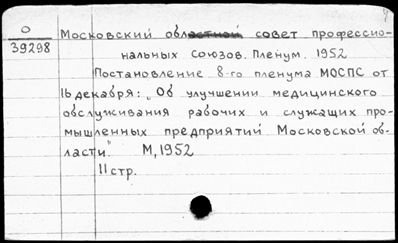 О
39298
Московский областной совет профессио-
нальных союзов. Пленум. 1952
Постановление 8-го пленума МОСПС от
16 декабря: „Об улучшении медицинского
обслуживания рабочих и служащих про-
мышленных предприятий Московской об-
ласти." М, 1952
11 стр.